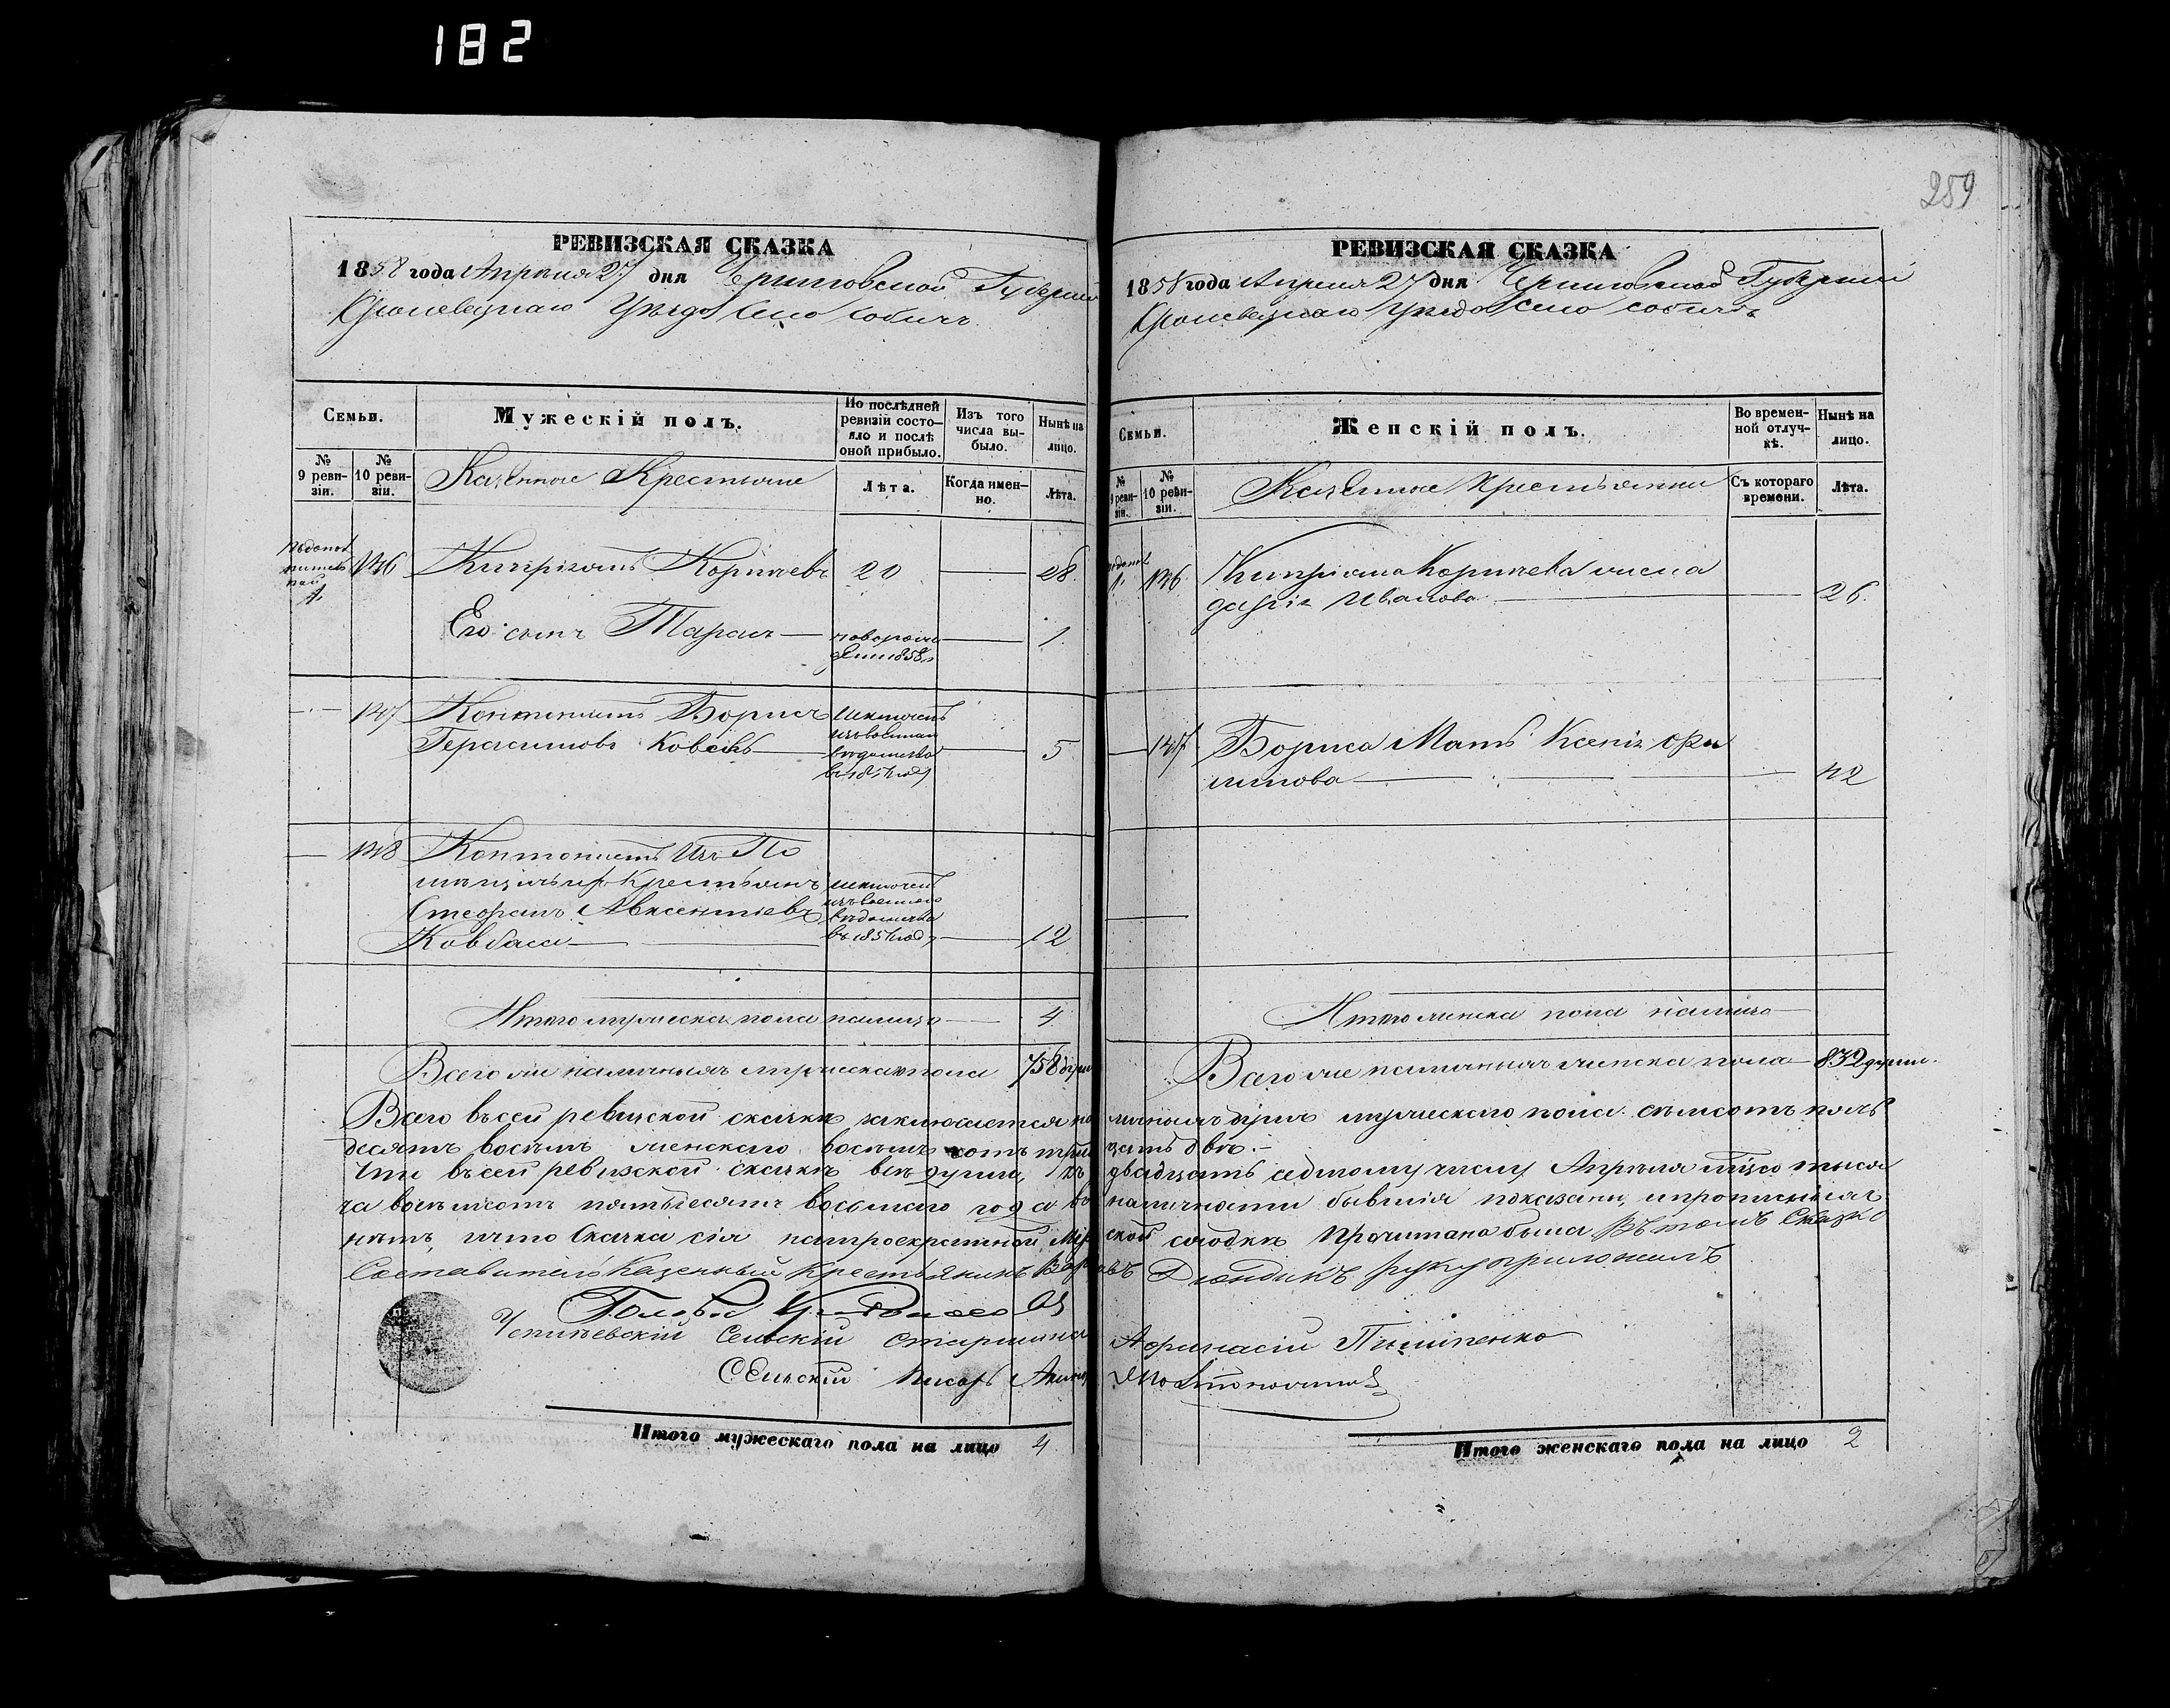 182
259
РЕВИЗСКАЯ СКАЗКА
1858 года Апреля 27 дня Черниговской Губернии
Кролевецкаго Уезда Село Собичъ
Семьи.
Мужескій полъ.
По послѣдней ревизіи состояло и послѣ оной прибыло.
Изъ того числа выбыло.
Нынѣ на лицо.
№ 9 ревизіи.
№ 10 ревизіи.
Казенные Крестьяне
Лѣта.
Когда именно.
Лѣта.
146 Кипріянъ Корнѣевъ 20 28
Его сынъ Тарасъ 1858 1
147 Кантонистъ Борисъ
Герасимовъ 5
исключенъ изъ военнаго ведомства въ 1857 году
148 Кантонистъ Изъ По
мѣщичьихъ Крестьянъ
Стефанъ Авксентіевъ
Ковбаса 12
исключенъ изъ военнаго ведомства въ 1857 году
Итого мужеска пола налицо 4
Всего же наличныхъ мужеска пола 758 душъ
РЕВИЗСКАЯ СКАЗКА
1858 года Апреля 27 дня Черниговской Губерніи
Кролевецкаго Уезда Село Собичъ
Семьи.
Женскій полъ.
Во временной отлучкѣ.
Нынѣ на лицо.
№ 9 ревизіи.
№ 10 ревизіи.
Казенные Крестьянки
Съ котораго времени.
Лѣта.
146 Кипріяна Корнѣева жена
Дарія Иванова 26
147 Бориса Мать Ксенія Фи
липова 42
Итого женска пола налицо
Всего же наличныхъ женска пола 832 души
Всего въ сей ревизской сказкѣ заключается наличныхъ душъ мужескаго пола семьсотъ пять
десятъ восемь женскаго восемь сотъ тридцать две.
Что въ сей ревизской сказкѣ все души, къ двадцать седьмому числу Апрѣля тыся
ча восемьсотъ пятьдесятъ восьмаго года въ наличности бывшія показаны, и прописныхъ
нетъ, что Сказка сія на троекратной Мирской сходкѣ прочитана была Въ томъ Сказко
Составитель Казенный Крестьянинъ руку приложилъ
Голова
Сельскій Старшина Афанасій Пилипенко
Сельскій Писарь
Итого мужескаго пола на лицо 4
Итого женскаго пола на лицо 2